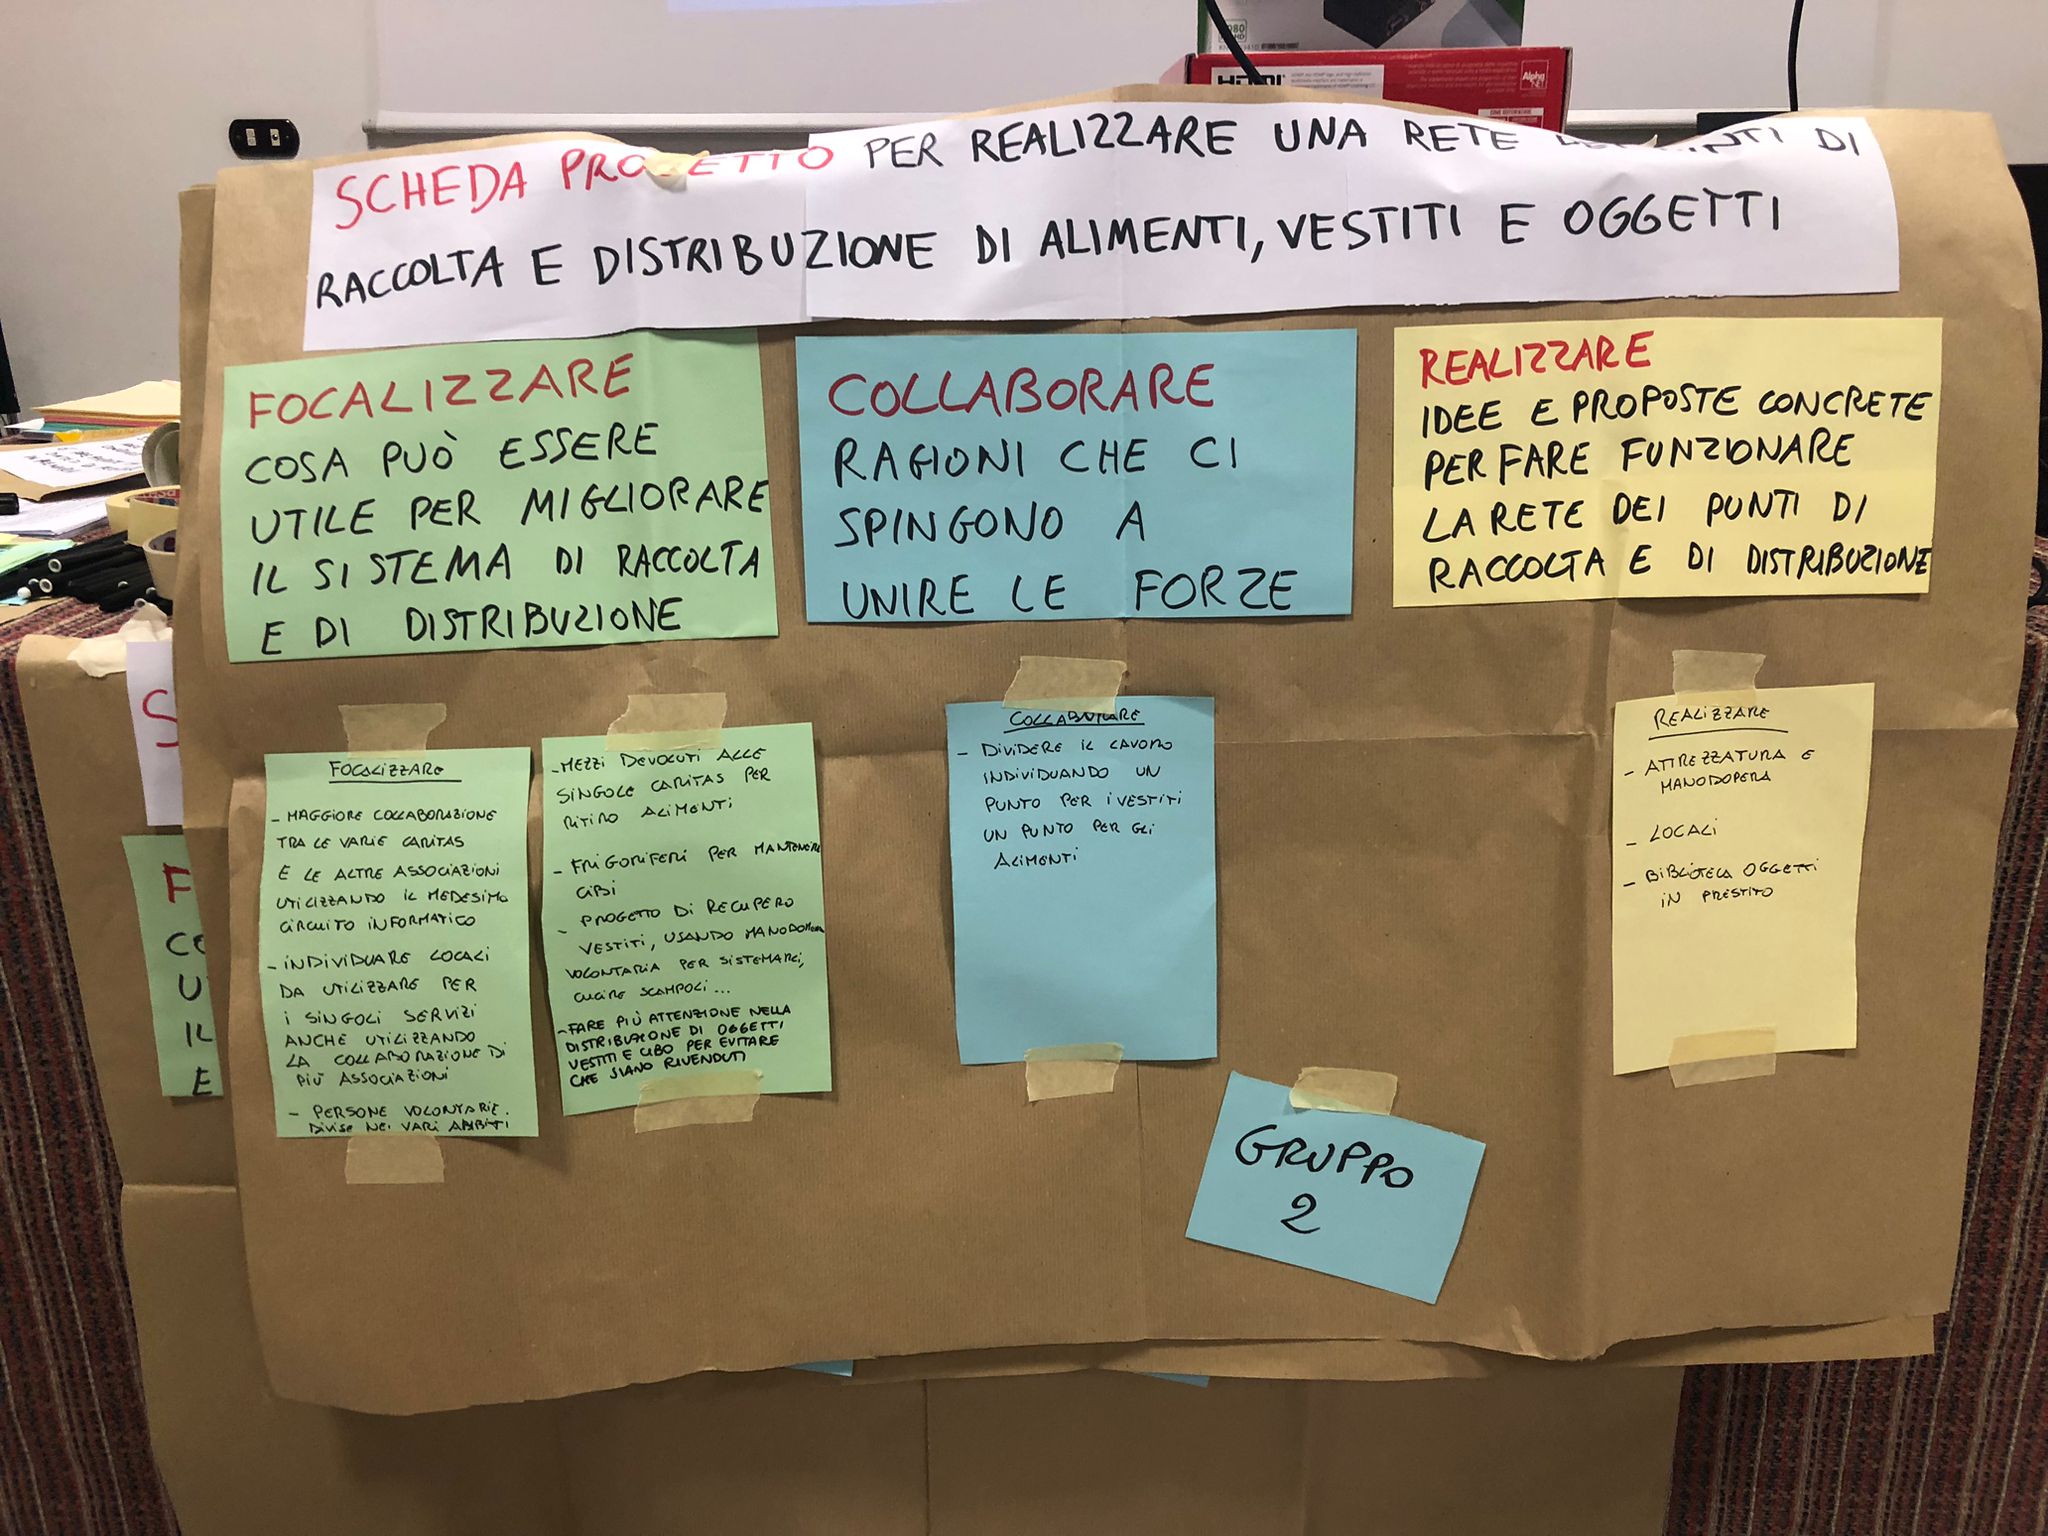 HDMI
Alpha
SCHEDA PROGETTO PER REALIZZARE UNA RETE DEI PUNTI DI
RACCOLTA E DISTRIBUZIONE DI ALIMENTI, VESTITI E OGGETTI
FOCALIZZARE
COSA PUÒ ESSERE
UTILE PER MIGLIORARE
IL SISTEMA DI RACCOLTA
E DI DISTRIBUZIONE
COLLABORARE
RAGIONI CHE CI
SPINGONO A
UNIRE LE FORZE
REALIZZARE
IDEE E PROPOSTE CONCRETE
PER FARE FUNZIONARE
LA RETE DEI PUNTI DI
RACCOLTA E DI DISTRIBUZIONE
FOCALIZZARE
- MAGGIORE COLLABORAZIONE
TRA LE VARIE CARITAS
E LE ALTRE ASSOCIAZIONI
UTILIZZANDO IL MEDESIMO
CIRCUITO INFORMATICO
- INDIVIDUARE LOCALI
DA UTILIZZARE PER
I SINGOLI SERVIZI
ANCHE UTILIZZANDO
LA COLLABORAZIONE DI
PIÙ ASSOCIAZIONI
- PERSONE VOLONTARIE.
DIVISE NEI VARI AMBITI
- MEZZI DEVOLUTI ALLE
SINGOLE CARITAS PER
RITIRO ALIMENTI
- FRIGORIFERI PER MANTENERE
CIBI
- PROGETTO DI RECUPERO
VESTITI, USANDO MANODOPERA
VOLONTARIA PER SISTEMARLI,
CUCIRE SCAMPOLI...
- FARE PIÙ ATTENZIONE NELLA
DISTRIBUZIONE DI OGGETTI
VESTITI E CIBO PER EVITARE
CHE SIANO RIVENDUTI
COLLABORARE
- DIVIDERE IL LAVORO
INDIVIDUANDO UN
PUNTO PER I VESTITI
UN PUNTO PER GLI
ALIMENTI
REALIZZARE
- ATTREZZATURA E
MANODOPERA
- LOCALI
- BIBLIOTECA OGGETTI
IN PRESTITO
GRUPPO
2
S
F
CO
U
IL
E